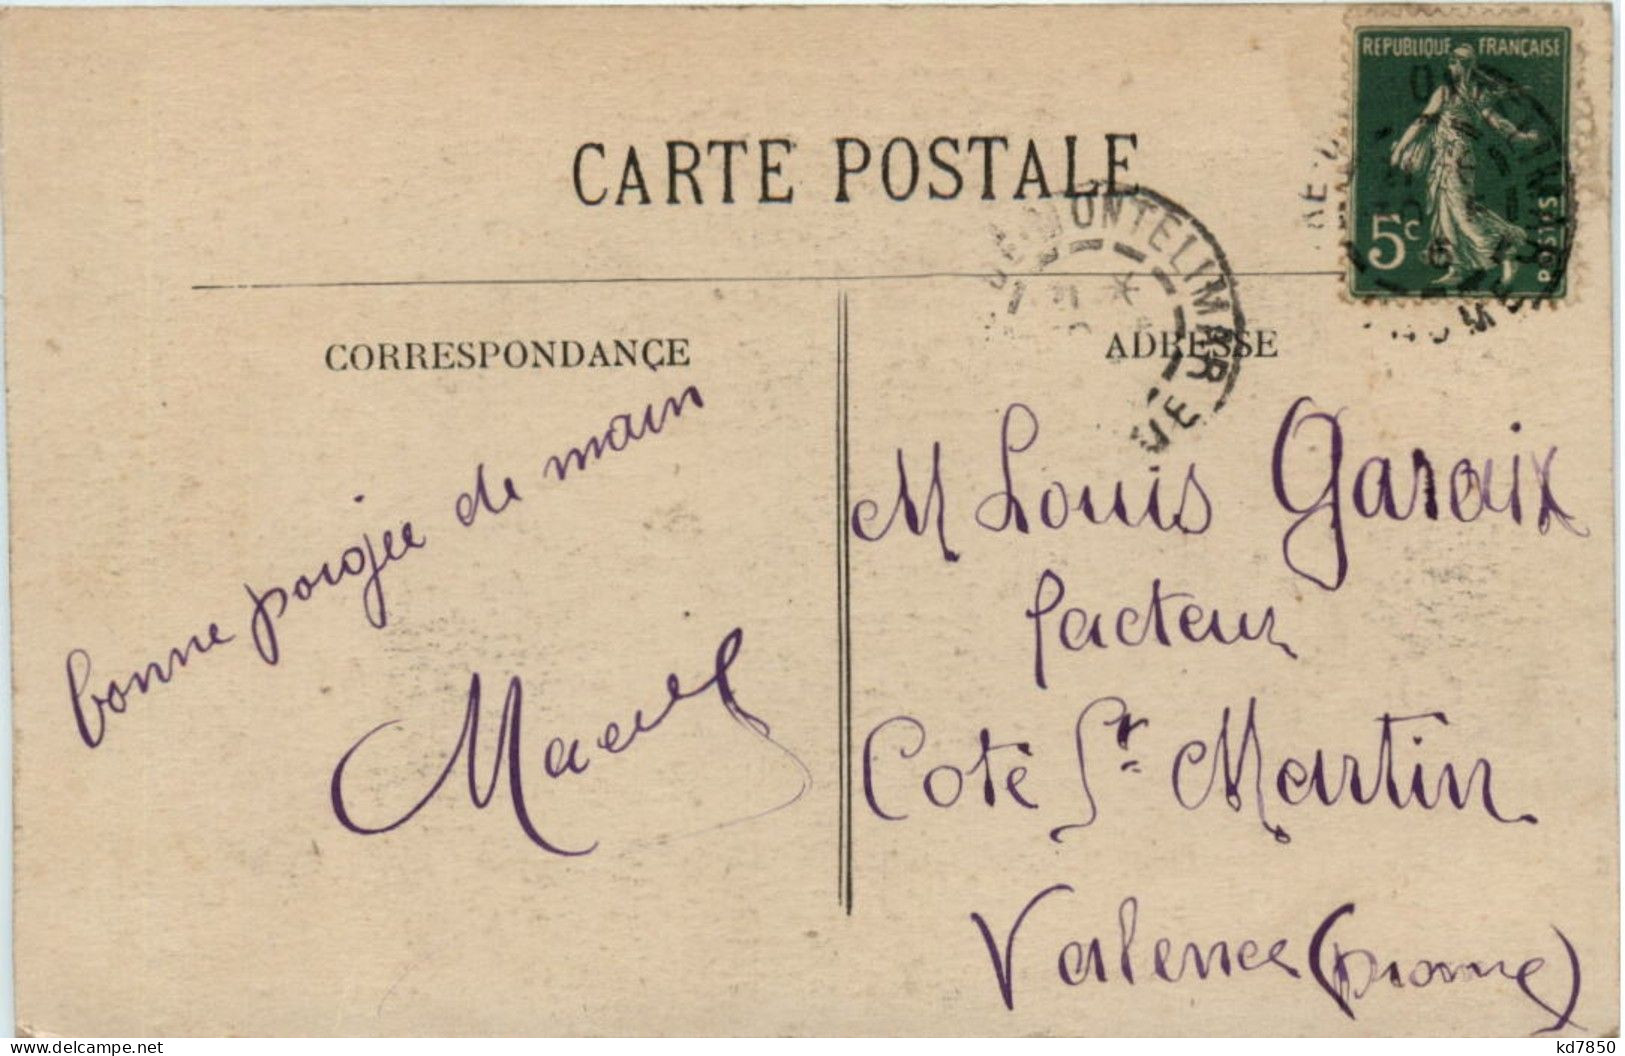 CARTE POSTALE
REPUBLIQUE FRANÇAISE
5c
POSTES
MONTELIMAR
CORRESPONDANCE
ADRESSE
bonne poigée de main
Marcel
M Louis Garaix
facteur
Coté St Martin
Valence (Drome)
delcampe.net
kd7850